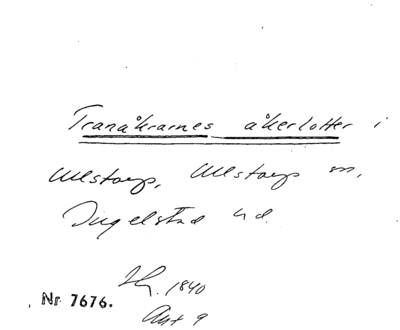 Tranåkrarnes åkerlotter i
Ullstorp, Ullstorp sn,
Ingelstad hd.
1840
Nr 7676.
Akt 9